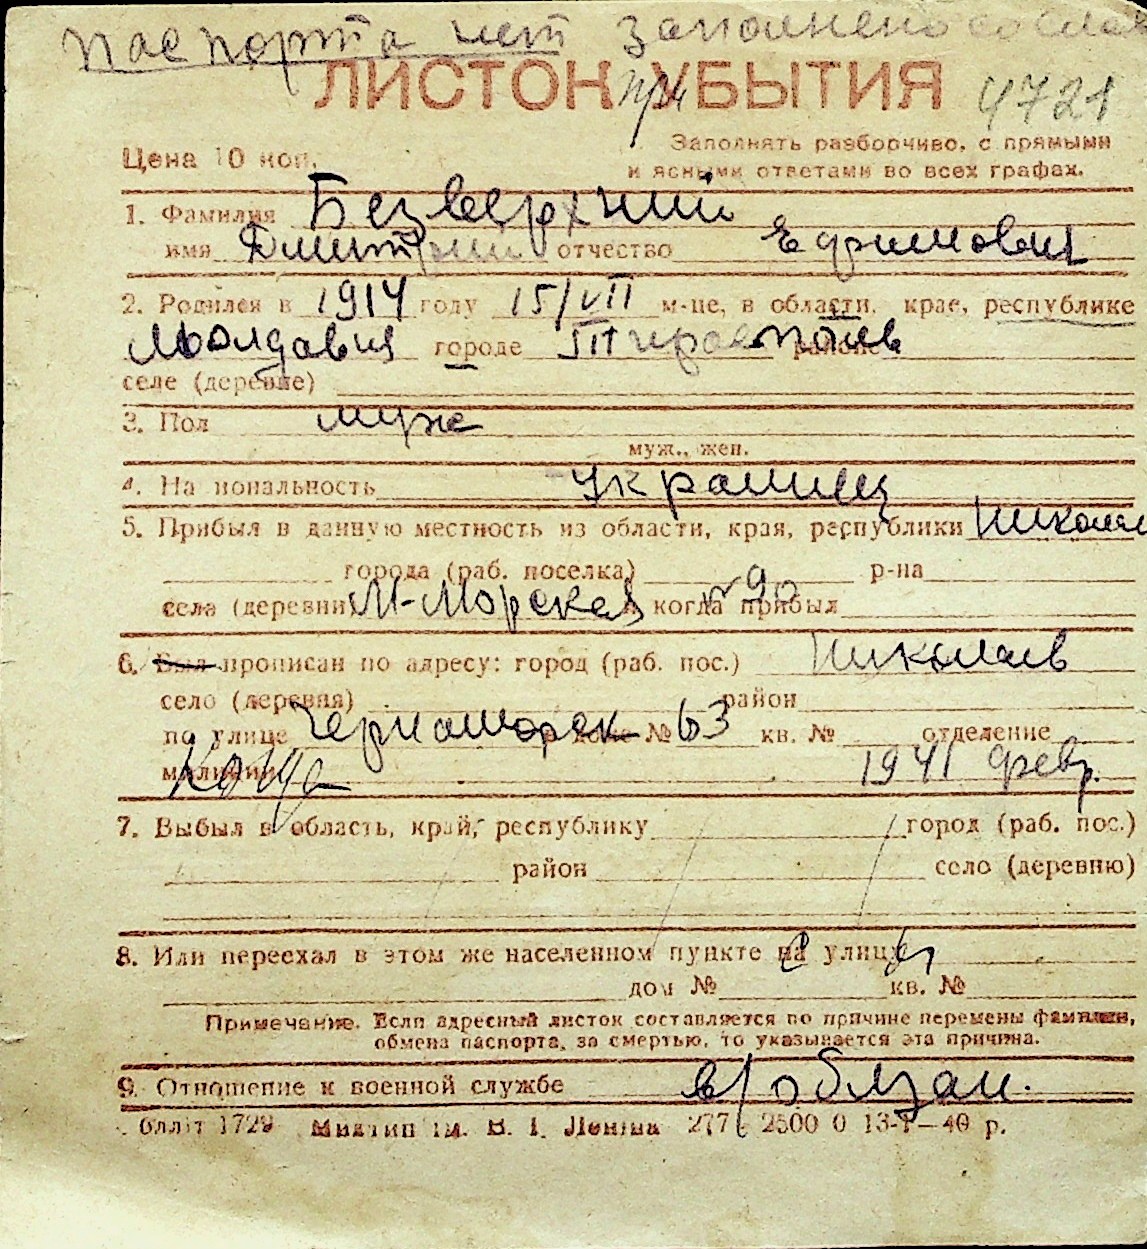 паспорта нет заполнено со слов
ЛИСТОК УБЫТИЯ
4721
Цена 10 коп.
Заполнять разборчиво, с прямыми
и ясными ответами во всех графах.
1. Фамилия Безверхний
имя Дмитрий отчество Ефимович
2. Родился в 1914 году 15/VII м-це, в области, крае, республике
Молдавия городе Тирасполь районе
селе (деревне)
3. Пол муж
муж., жен.
4. Национальность Украинец
5. Прибыл в данную местность из области, края, республики Николаев
города (раб. поселка) р-на
села (деревни) М-Морская № 90 и когда прибыл
6. Был прописан по адресу: город (раб. пос.) Николаев
село (деревня) район
по улице Черноморск доме № 63 кв. № отделение
милиции Когда 1941 февр.
7. Выбыл в область, край, республику город (раб. пос.)
район село (деревню)
8. Или переехал в этом же населенном пункте на улицу
дом № кв. №
Примечание. Если адресный листок составляется по причине перемены фамилии,
обмена паспорта, за смертью, то указывается эта причина.
9. Отношение к военной службе в/обязан.
1729 ім. В. І. Леніна 277 2500 0 13-I—40 р.